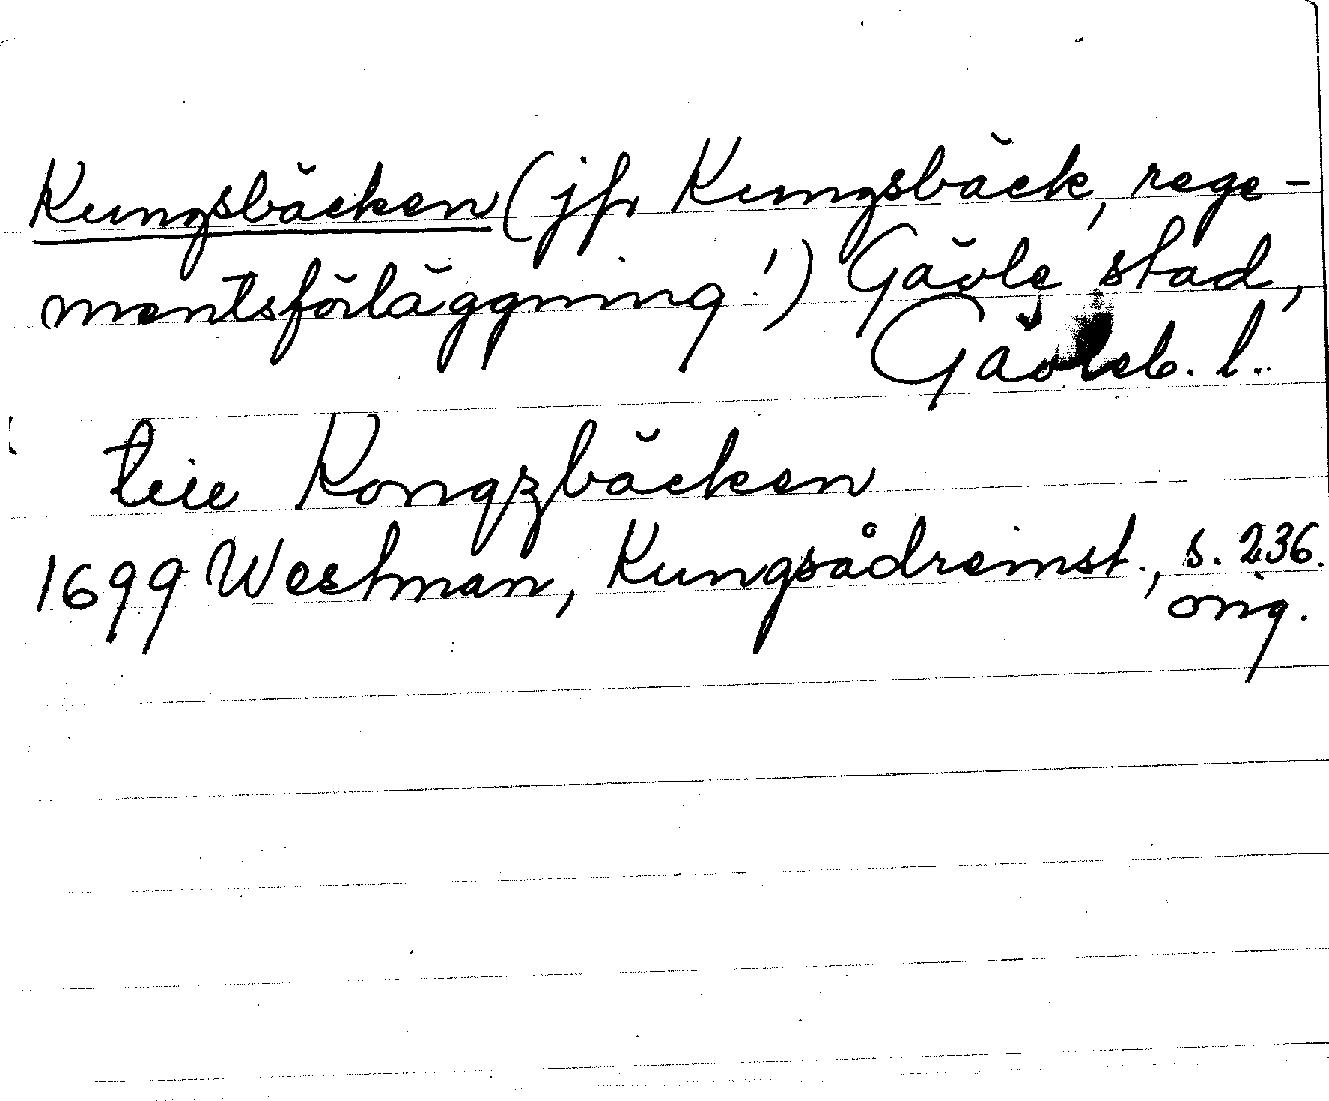 Kungsbäcken (jfr Kungsbäck, rege-
mentsförläggning!) Gävle stad,
Gävleb. l.
till Kongzbäcken
1699 Westman, Kungsådreinst., s. 236.
orig.